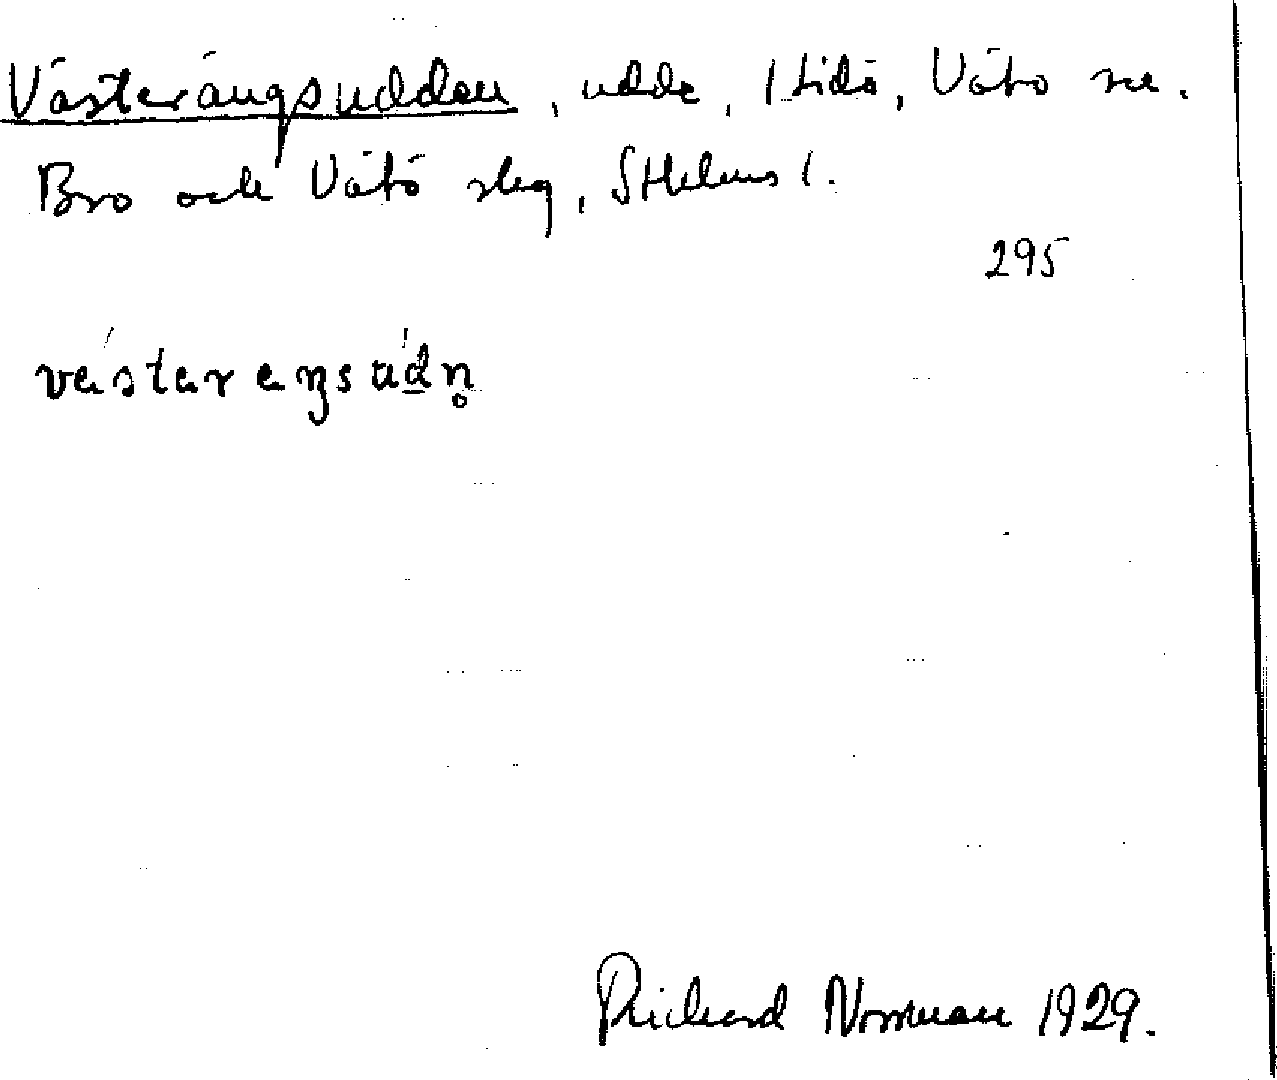 Västerängsudden, udde, Lidö, Vätö sn.
Bro och Vätö skg, Sthlms l.
295
västerəŋsudn̥
Richard Norrman 1929.